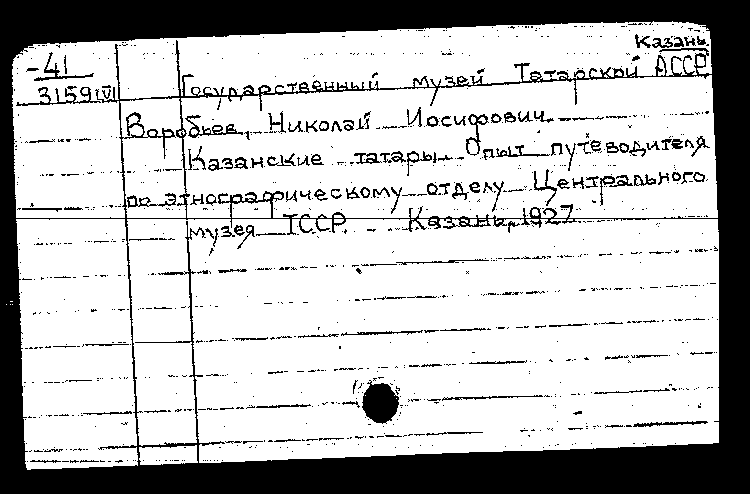 Казань
-41
Государственный музей Татарской АССР
3159 VI
Воробьев, Николай Иосифович.
Казанские татары. Опыт путеводителя
по этнографическому отделу Центрального
музея ТССР. - Казань, 1927